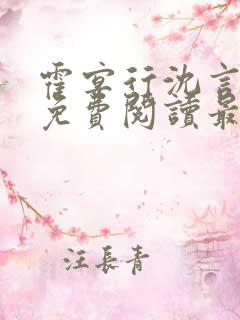 霍宴行沈言
免費閱讀最
汪長青